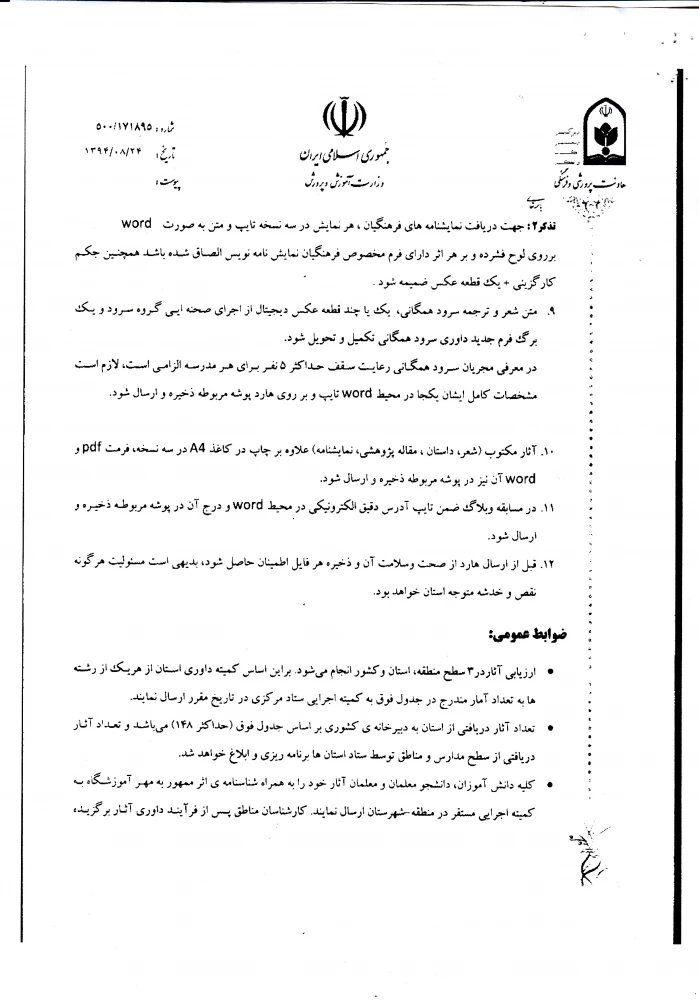 شماره : ۵۰۰/۱۷۱۸۹۵
تاریخ : ۱۳۹۴/۰۸/۲۴
پیوست :
جمهوری اسلامی ایران
وزارت آموزش و پرورش
معاونت پرورشی و فرهنگی
تذکر۲: جهت دریافت نمایشنامه های فرهنگیان ، هر نمایش در سه نسخه تایپ و متن به صورت word
برروی لوح فشرده و بر هر اثر دارای فرم مخصوص فرهنگیان نمایش نامه نویس الصاق شده باشد همچنین حکم
کارگزینی + یک قطعه عکس ضمیمه شود .
۹. متن شعر و ترجمه سرود همگانی، یک یا چند قطعه عکس دیجیتال از اجرای صحنه ایی گروه سرود و یک
برگ فرم جدید داوری سرود همگانی تکمیل و تحویل شود.
در معرفی مجریان سرود همگانی رعایت سقف حداکثر ۵ نفر برای هر مدرسه الزامی است، لازم است
مشخصات کامل ایشان یکجا در محیط word تایپ و بر روی هارد پوشه مربوطه ذخیره و ارسال شود.
۱۰. آثار مکتوب (شعر، داستان ، مقاله پژوهشی، نمایشنامه) علاوه بر چاپ در کاغذ A4 در سه نسخه، فرمت pdf و
word آن نیز در پوشه مربوطه ذخیره و ارسال شود.
۱۱. در مسابقه وبلاگ ضمن تایپ آدرس دقیق الکترونیکی در محیط word و درج آن در پوشه مربوطه ذخیره و
ارسال شود.
۱۲. قبل از ارسال هارد از صحت وسلامت آن و ذخیره هر فایل اطمینان حاصل شود، بدیهی است مسئولیت هرگونه
نقص و خدشه متوجه استان خواهد بود.
ضوابط عمومی:
• ارزیابی آثاردر۳ سطح منطقه، استان وکشور انجام می‌شود. براین اساس کمیته داوری استان از هریک از رشته
ها به تعداد آمار مندرج در جدول فوق به کمیته اجرایی ستاد مرکزی در تاریخ مقرر ارسال نمایند.
• تعداد آثار دریافتی از استان به دبیرخانه ی کشوری بر اساس جدول فوق (حداکثر ۱۴۸) می‌باشد و تعداد آثار
دریافتی از سطح مدارس و مناطق توسط ستاد استان ها برنامه ریزی و ابلاغ خواهد شد.
• کلیه دانش آموزان، دانشجو معلمان و معلمان آثار خود را به همراه شناسنامه ی اثر ممهور به مهر آموزشگاه به
کمیته اجرایی مستقر در منطقه-شهرستان ارسال نمایند. کارشناسان مناطق پس از فرآیند داوری آثار برگزیده